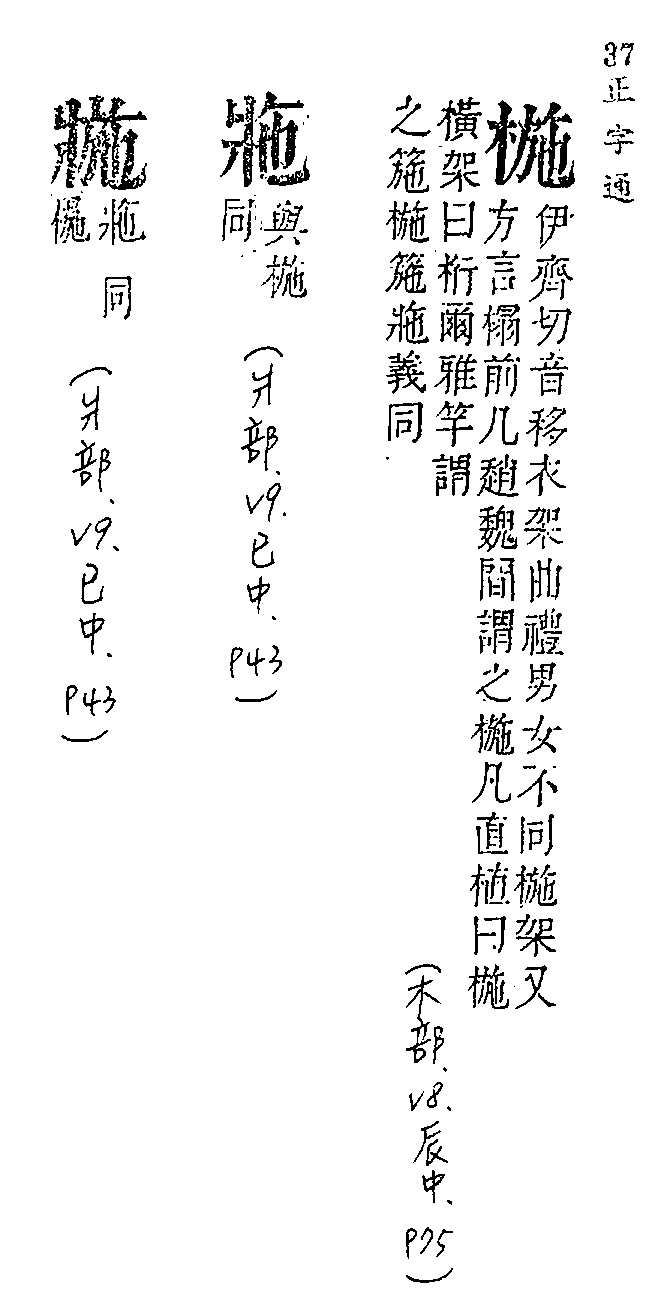 37正字通
椸
伊齊切音移衣架曲禮男女不同椸架又
方言榻前几趙魏間謂之椸凡直植曰椸
橫架曰桁爾雅竿謂
之箷椸箷義同
(木部、v8、辰中、P75)
與椸
同
(爿部、v9、巳中、P43)
同
(爿部、v9、巳中、P43)